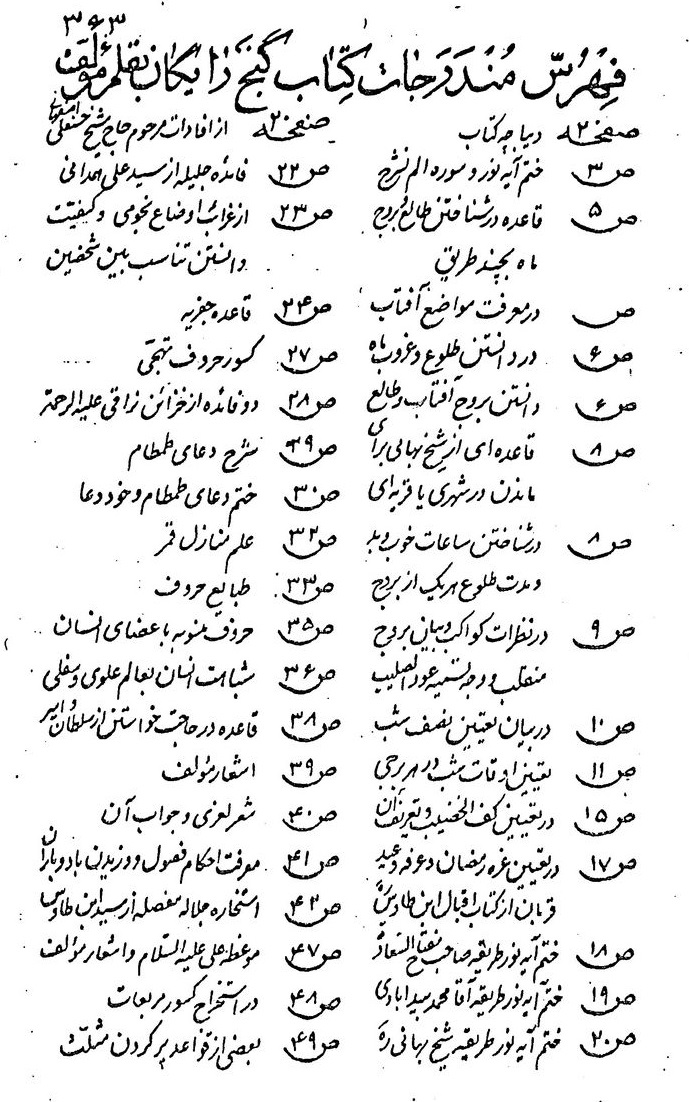 ۳۶۳
فهرس مندرجات کتاب گنج رایگان بقلم مؤلف
صفحه ۲ دیباچه کتاب
ص ۳ ختم آیه نور و سوره الم نشرح
ص ۵ قاعده در شناختن طالع بروج
ماه بچند طریق
ص در معرفت مواضع آفتاب
ص ۶ در دانستن طلوع و غروب ماه
ص ۶ دانستن بروج آفتاب و طالع
ص ۸ قاعده ای از شیخ بهائی برای
ماندن در شهری یا قریه ای
ص ۸ در شناختن ساعات خوب و بد
و مدت طلوع هر یک از بروج
ص ۹ در نظرات کواکب و بیان بروج
منقلب و وجه تسمیه عود الصلیب
ص ۱۰ در بیان تعیین نصف شب
ص ۱۱ تعیین اوقات شب در هر برجی
ص ۱۵ در تعیین کف الخضیب و تعریف آن
ص ۱۷ در تعیین غره رمضان و عرفه و عید
قربان از کتاب اقبال ابن طاوس
ص ۱۸ ختم آیه نور طریقه صاحب مفتاح السعاده
ص ۱۹ ختم آیه نور طریقه آقا محمد بیدابادی
ص ۲۰ ختم آیه نور طریقه شیخ بهائی ره
صفحه ۲۰ از افادات مرحوم حاج شیخ حسنعلی اصفهانی
ص ۲۲ فائده جلیله از سید علی همدانی
ص ۲۳ از غرائب اوضاع نجومی و کیفیت
دانستن تناسب بین شخصین
ص ۲۴ قاعده جفریه
ص ۲۷ کسور حروف تهجی
ص ۲۸ دو فائده از خزائن نراقی علیه الرحمة
ص ۲۹ شرح دعای طمطام
ص ۳۰ ختم دعای طمطام و خود دعا
ص ۳۲ علم منازل قمر
ص ۳۳ طبایع حروف
ص ۳۵ حروف منسوبه باعضای انسان
ص ۳۶ شباهت انسان بعالم علوی و سفلی
ص ۳۸ قاعده در حاجت خواستن از سلطان و امیر
ص ۳۹ اشعار مؤلف
ص ۴۰ شعر لغزی و جواب آن
ص ۴۱ معرفت احکام فصول و وزیدن باد و باران
ص ۴۲ استخاره جلاله مفصله از سید ابن طاوس
ص ۴۷ موعظه علی علیه السلام و اشعار مؤلف
ص ۴۸ در استخراج کسور مربعات
ص ۴۹ بعضی از قواعد پر کردن مثلث